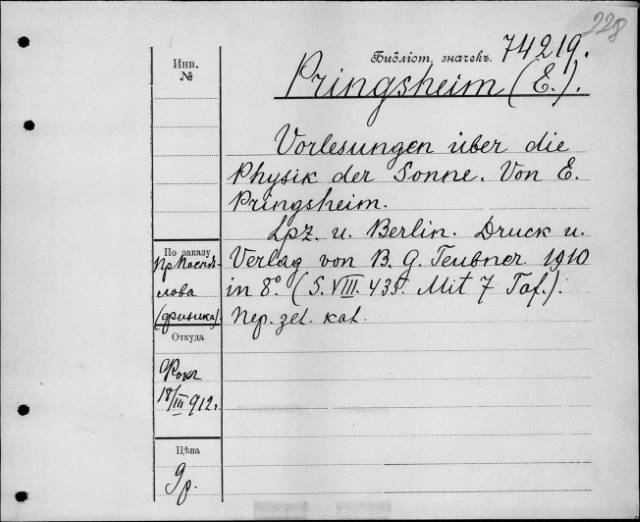 228
Библіот. значекъ. 74219.
Инв.
№
Pringsheim (E.).
Vorlesungen über die
Physik der Sonne. Von E.
Pringsheim.
Lpz. u. Berlin. Druck u.
Verlag von B. G. Teubner 1910
in 8°. (S. VIII. 435. Mit 7 Taf.).
Пер. zel. kal.
По заказу
(физика)
Откуда
18/III 912.
Цѣна
9р.